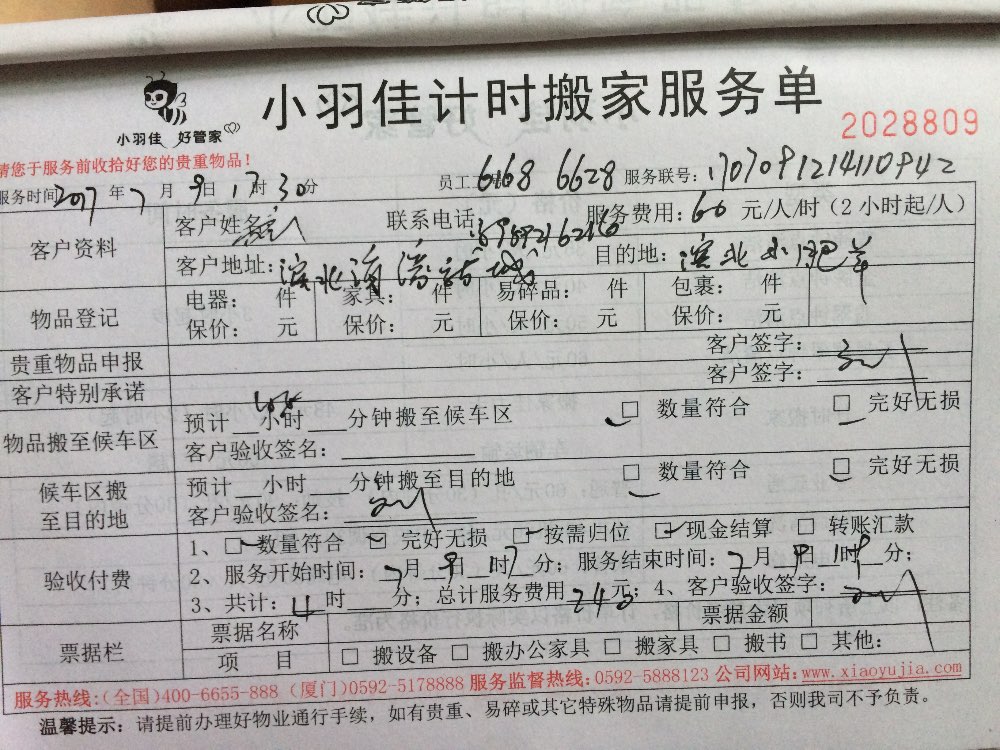 小羽佳计时搬家服务单
小羽佳 好管家
2028809
请您于服务前收拾好您的贵重物品！
服务时间2017年7月9日17时30分 员工工号 6168 6628 服务联号：1707091214110942
客户资料 客户姓名： 联系电话： 服务费用：60元/人/时（2小时起/人）
客户地址：滨北 目的地：滨北小肥羊
物品登记 电器： 件 家具： 件 易碎品： 件 包裹： 件
保价： 元 保价： 元 保价： 元 保价： 元
贵重物品申报 客户签字：
客户特别承诺 客户签字：
物品搬至候车区 预计 小时 分钟搬至候车区 □ 数量符合 □ 完好无损
客户验收签名：
候车区搬至目的地 预计 小时 分钟搬至目的地 □ 数量符合 □ 完好无损
客户验收签名：
验收付费 1、□数量符合 □完好无损 □按需归位 □现金结算 □ 转账汇款
2、服务开始时间：7月9日17分；服务结束时间：7月9日19分；
3、共计：4时 分；总计服务费用245元；4、客户验收签字：
票据栏 票据名称 票据金额
项 目 □ 搬设备 □ 搬办公家具 □ 搬家具 □ 搬书 □ 其他：
服务热线：(全国)400-6655-888（厦门)0592-5178888 服务监督热线：0592-5888123 公司网站：www.xiaoyujia.com
温馨提示：请提前办理好物业通行手续，如有贵重、易碎或其它特殊物品请提前申报，否则我司不予负责。